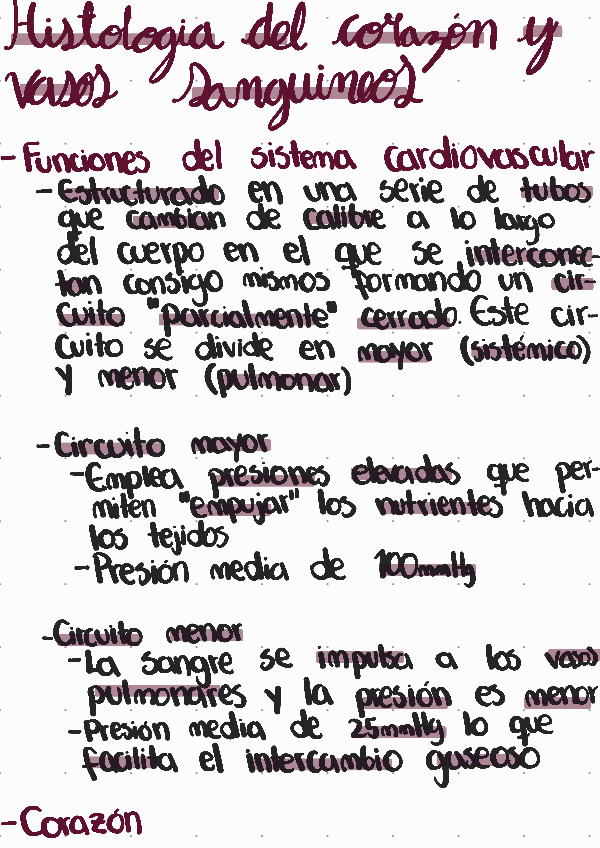 Histologia del corazón y
vasos sanguineos
- Funciones del sistema cardiovascular
- Estructurado en una serie de tubos
que cambian de calibre a lo largo
del cuerpo en el que se interconec-
tan consigo mismos formando un cir-
cuito "parcialmente" cerrado. Este cir-
cuito se divide en mayor (sistémico)
y menor (pulmonar)
- Circuito mayor
- Emplea presiones elevadas que per-
miten "empujar" los nutrientes hacia
los tejidos
- Presión media de 100mmHg
- Circuito menor
- La sangre se impulsa a los vasos
pulmonares y la presión es menor
- Presión media de 25mmHg lo que
facilita el intercambio gaseoso
- Corazón